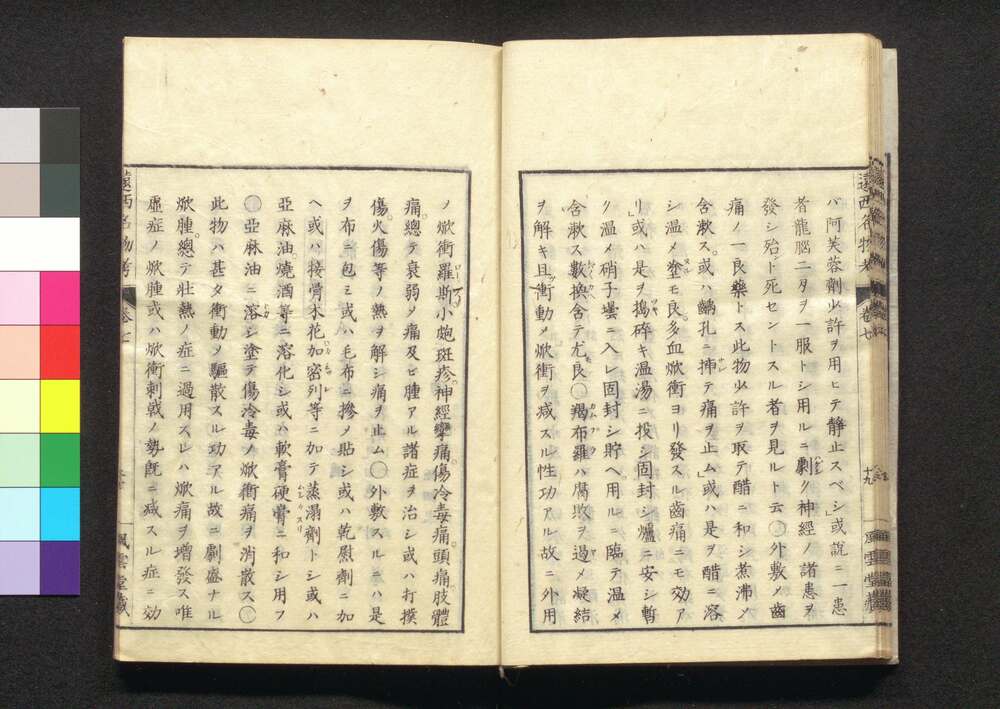 ハ阿芙蓉劑少許ヲ用ヒテ静止スベシ或説ニ一患
者龍腦二夕ヲ一服トシ用ルニ劇ク神經ノ諸患ヲ
發シ殆ド死セントスル者ヲ見ルト云○外敷メ齒
痛ノ一良藥トス此物少許ヲ取テ醋ニ和シ煮沸メ
含漱ス。或ハ齲孔ニ挿テ痛ヲ止ム」或ハ是ヲ醋ニ溶
シ温メ塗モ良多血焮衝ヨリ發スル齒痛ニモ效ア
リ」或ハ是ヲ搗碎キ温湯ニ投シ固封シ爐ニ安シ暫
ク温メ硝子壜ニ入レ固封シ貯ヘ用ルニ臨テ温メ
含漱ス數換含テ尤良○羯布羅ハ腐敗ヲ過メ凝結
ヲ解キ且ツ衝動メ焮衝ヲ減スル性功アル故ニ外用
遠西名物考 卷七 十九 風雲堂藏
ノ焮衝羅斯小皰斑疹。神經攣痛傷冷毒痛。頭痛。肢體
痛。總テ衰弱ノ痛及ビ腫アル諸症ヲ治シ或ハ打撲
傷。火傷等ノ熱ヲ解シ痛ヲ止ム○外敷スルニハ是
ヲ布ニ包ミ或ハ毛布ニ摻メ貼シ或ハ乾慰劑ニ加
ヘ或ハ接骨木花加密列等ニ加テ蒸溻劑トシ或ハ
亞麻油。燒酒等ニ溶化シ或ハ軟膏硬膏ニ和シ用フ
○亞麻油ニ溶シ塗テ傷冷毒ノ焮衝痛ヲ消散ス○
此物ハ甚タ衝動メ驅散スル功アル故ニ劇盛ナル
焮腫。總テ壯熱ノ症ニ過用スレハ焮痛ヲ增發ス唯
虛症ノ焮腫或ハ焮衝刺戟ノ勢既ニ減スル症ニ効
遠西名物考 卷七 風雲堂藏